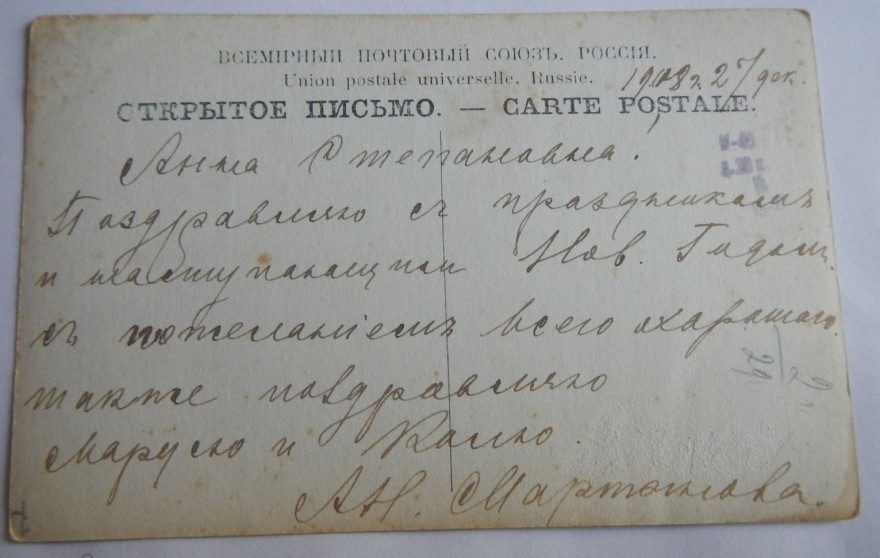 ВСЕМІРНЫЙ ПОЧТОВЫЙ СОЮЗЪ. РОССІЯ.
Union postale universelle. Russie.
1908 г 27 дек.
ОТКРЫТОЕ ПИСЬМО. — CARTE POSTALE.
Анна Степановна!
Поздравляю съ праздникомъ
и наступающим Нов. Годом.
съ пожеланіемъ всего харашаго.
также поздравляю
Марусю и Колю.